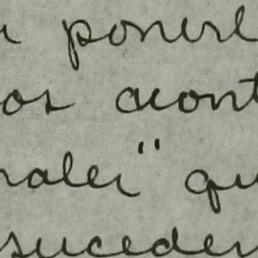 ponerl
os acont
nales" qu
suceden